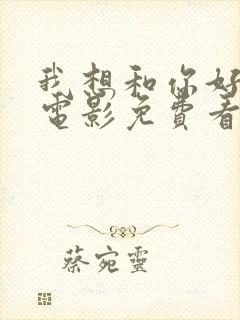 我想和你好
電影免費看
蔡宛靈